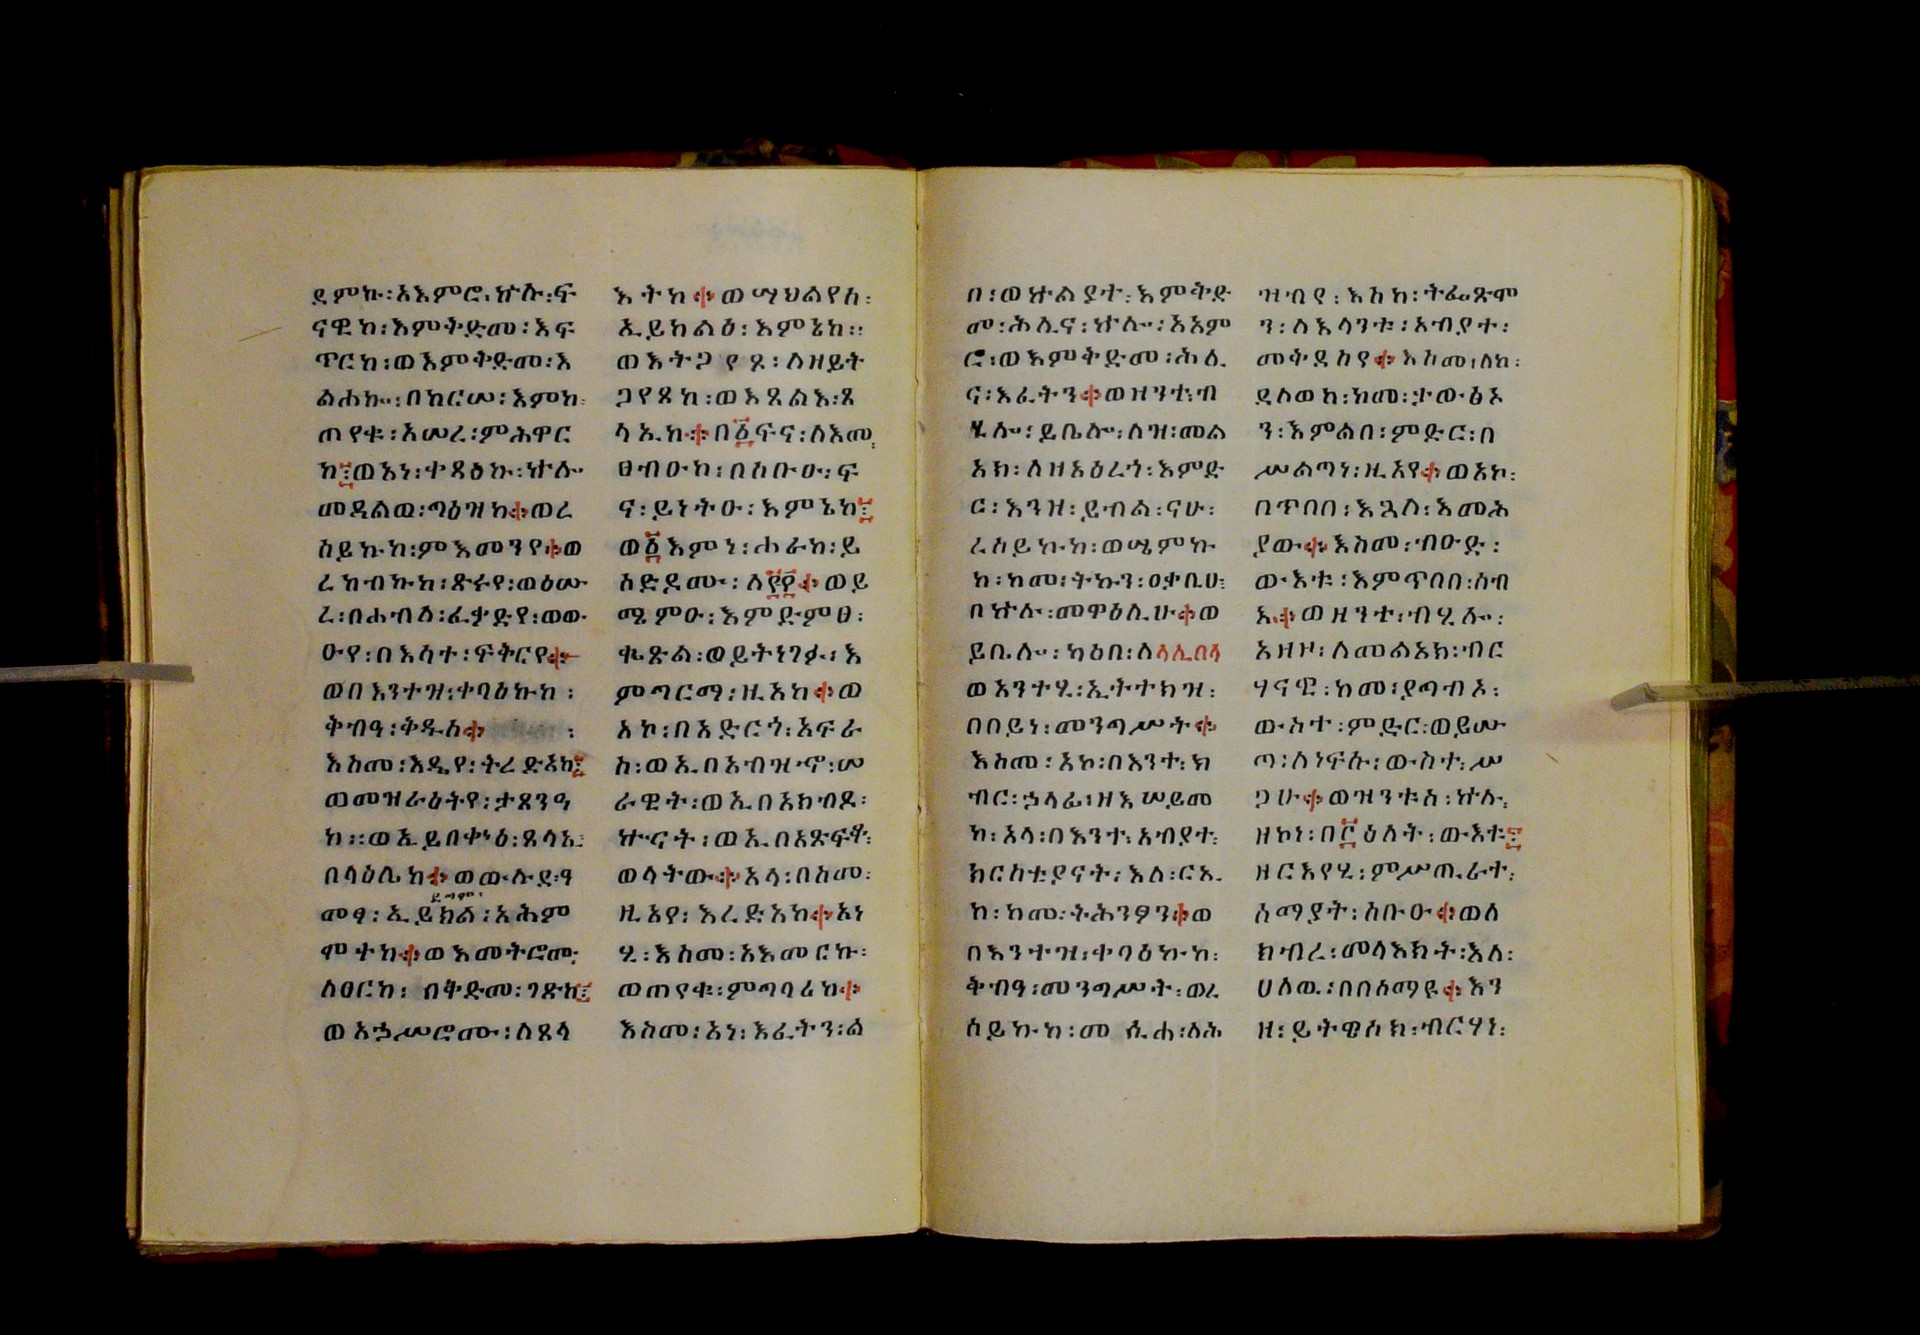 ደምኩ፡አእምሮ፡ኵሉ፡ፍ
ናዊከ፡እምቅድመ፡እፍ
ጥርከ፡ወእምቅድመ፡እ
ልሐኮ፡በከርሠ፡እምከ
ጠየቁ፡አሠረ፡ምሕዋር
ከ፤ወአነ፡ተዳዕኩ፡ኵሉ
መዲልወ፡ጣዕዝከ።ወረ
ሰይኩከ፡ምእመንየ።ወ
ረከብኩከ፡ጽሩየ፡ወዕሡ
ረ፡በሐብለ፡ፈቃድየ፡ወው
ዑየ፡በእሳተ፡ፍቅርየ።
ወበእንተዝ፡ተባዕኩከ፡
ቅብዓ፡ቅዱስ።፡
እስመ፡እዴየ፡ትረድአከ፤
ወመዝራዕትየ፡ታጸንዓ
ከ።ወኢይበቀነዕ፡ጸላኢ፡
በላዕሌከ።ወውሉደ፡ዓ
ደጋም፡
መፃ፡ኢይክል፡አሕም
ሞተከ።ወእመትሮሙ፡
ለፀርከ፡በቅድመ፡ገጽከ፤
ወአኃሥሮሙ፡ለጸላ
እትከ።ወሣህልየሰ፡
ኢይከልዕ፡እምኔከ።
ወእትጋየጾ፡ለዘይት
ጋየጸከ፡ወእጸልእ፡ጸ
ላኢከ።በ፩ፍና፡ለእመ፡
ፀብዑከ፡በስቡዑ፡ፍ
ና፡ይነትዑ፡እምኔከ፤
ወ፩እምነ፡ሐራከ፡ይ
ሰድደሙ፡ለ፼፼።ወይ
ሜምዑ፡እምድምፀ፡
ቈጽል፡ወይትነገፉ፡እ
ምጣርማ፡ዚአከ።ወ
አኮ፡በአድርጎ፡አፍራ
ስ፡ወኢበአብዝኆ፡ሠ
ራዊት፡ወኢበአክብዶ፡
ኵናት፡ወኢበአጽፍቆ፡
ወላትው።አላ፡በስመ፡
ዚአየ፡እረድአከ።አነ
ሂ፡እስመ፡አእመርኩ፡
ወጠየቁ፡ምግባሪከ።
እስመ፡አነ፡እፈትን፡ል
በ፡ወኵልያተ፡እምቅድ
መ፡ሕሊና፡ኵሎ፡አአም
ሮ፡ወእምቅድመ፡ሕሊ
ና፡እፈትን።ወዝንቱ፡ብ
ሂሎ፡ይቤሎ፡ለዝ፡መል
አክ፡ለዘአዕረጎ፡እምድ
ር፡እንዘ፡ይብል፡ናሁ፡
ረሰይኩከ፡ወሤምኩ
ከ፡ከመ፡ትኩን፡ዐቃቢሁ፡
በኵሉ፡መዋዕሊሁ።ወ
ይቤሎ፡ካዕበ፡ለላሊበላ
ወአንተሂ፡ኢትተክዝ፡
በበይነ፡መንግሥት።
እስመ፡አኮ፡በእንተ፡ክ
ብር፡ኃላፊ፡ዘእሠይመ
ከ፡አላ፡በእንተ፡አብያተ፡
ክርስቲያናት፡እለ፡ርኢ
ከ፡ከመ፡ትሕንፆን።ወ
በእንተዝ፡ተባዕኩከ፡
ቅብዓ፡መንግሥት፡ወረ
ሰይኩከ፡መሲሐ፡ለሕ
ዝብየ፡እስከ፡ትፌጽሞ
ን፡ለእላንቱ፡አብያተ፡
መቅደስየ።እስመ፡ለከ፡
ደለወከ፡ከመ፡ታውፅኦ
ን፡እምልበ፡ምድር፡በ
ሥልጣነ፡ዚአየ።ወአኮ፡
በጥበበ፡እጓለ፡እመሕ
ያው።እስመ፡ብዑድ፡
ውእቱ፡እምጥበበ፡ሰብ
እ።ወዘንተ፡ብሂሎ፡
አዘዞ፡ለመልአክ፡ብር
ሃናዊ፡ከመ፡ያግብኦ፡
ውስተ፡ምድር፡ወይሡ
ጣ፡ለነፍሱ፡ውስተ፡ሥ
ጋሁ።ወዝንቱስ፡ኵሉ፡
ዘኮነ፡በ፫ዕለት፡ውእቱ፤
ዘርእየሂ፡ምሥጢራተ፡
ሰማያት፡ስቡዑ።ወለ
ክብረ፡መላእክት፡እለ፡
ሀለዉ፡በበሰማዩ።እን
ዘ፡ይትዌሰክ፡ብርሃነ፡